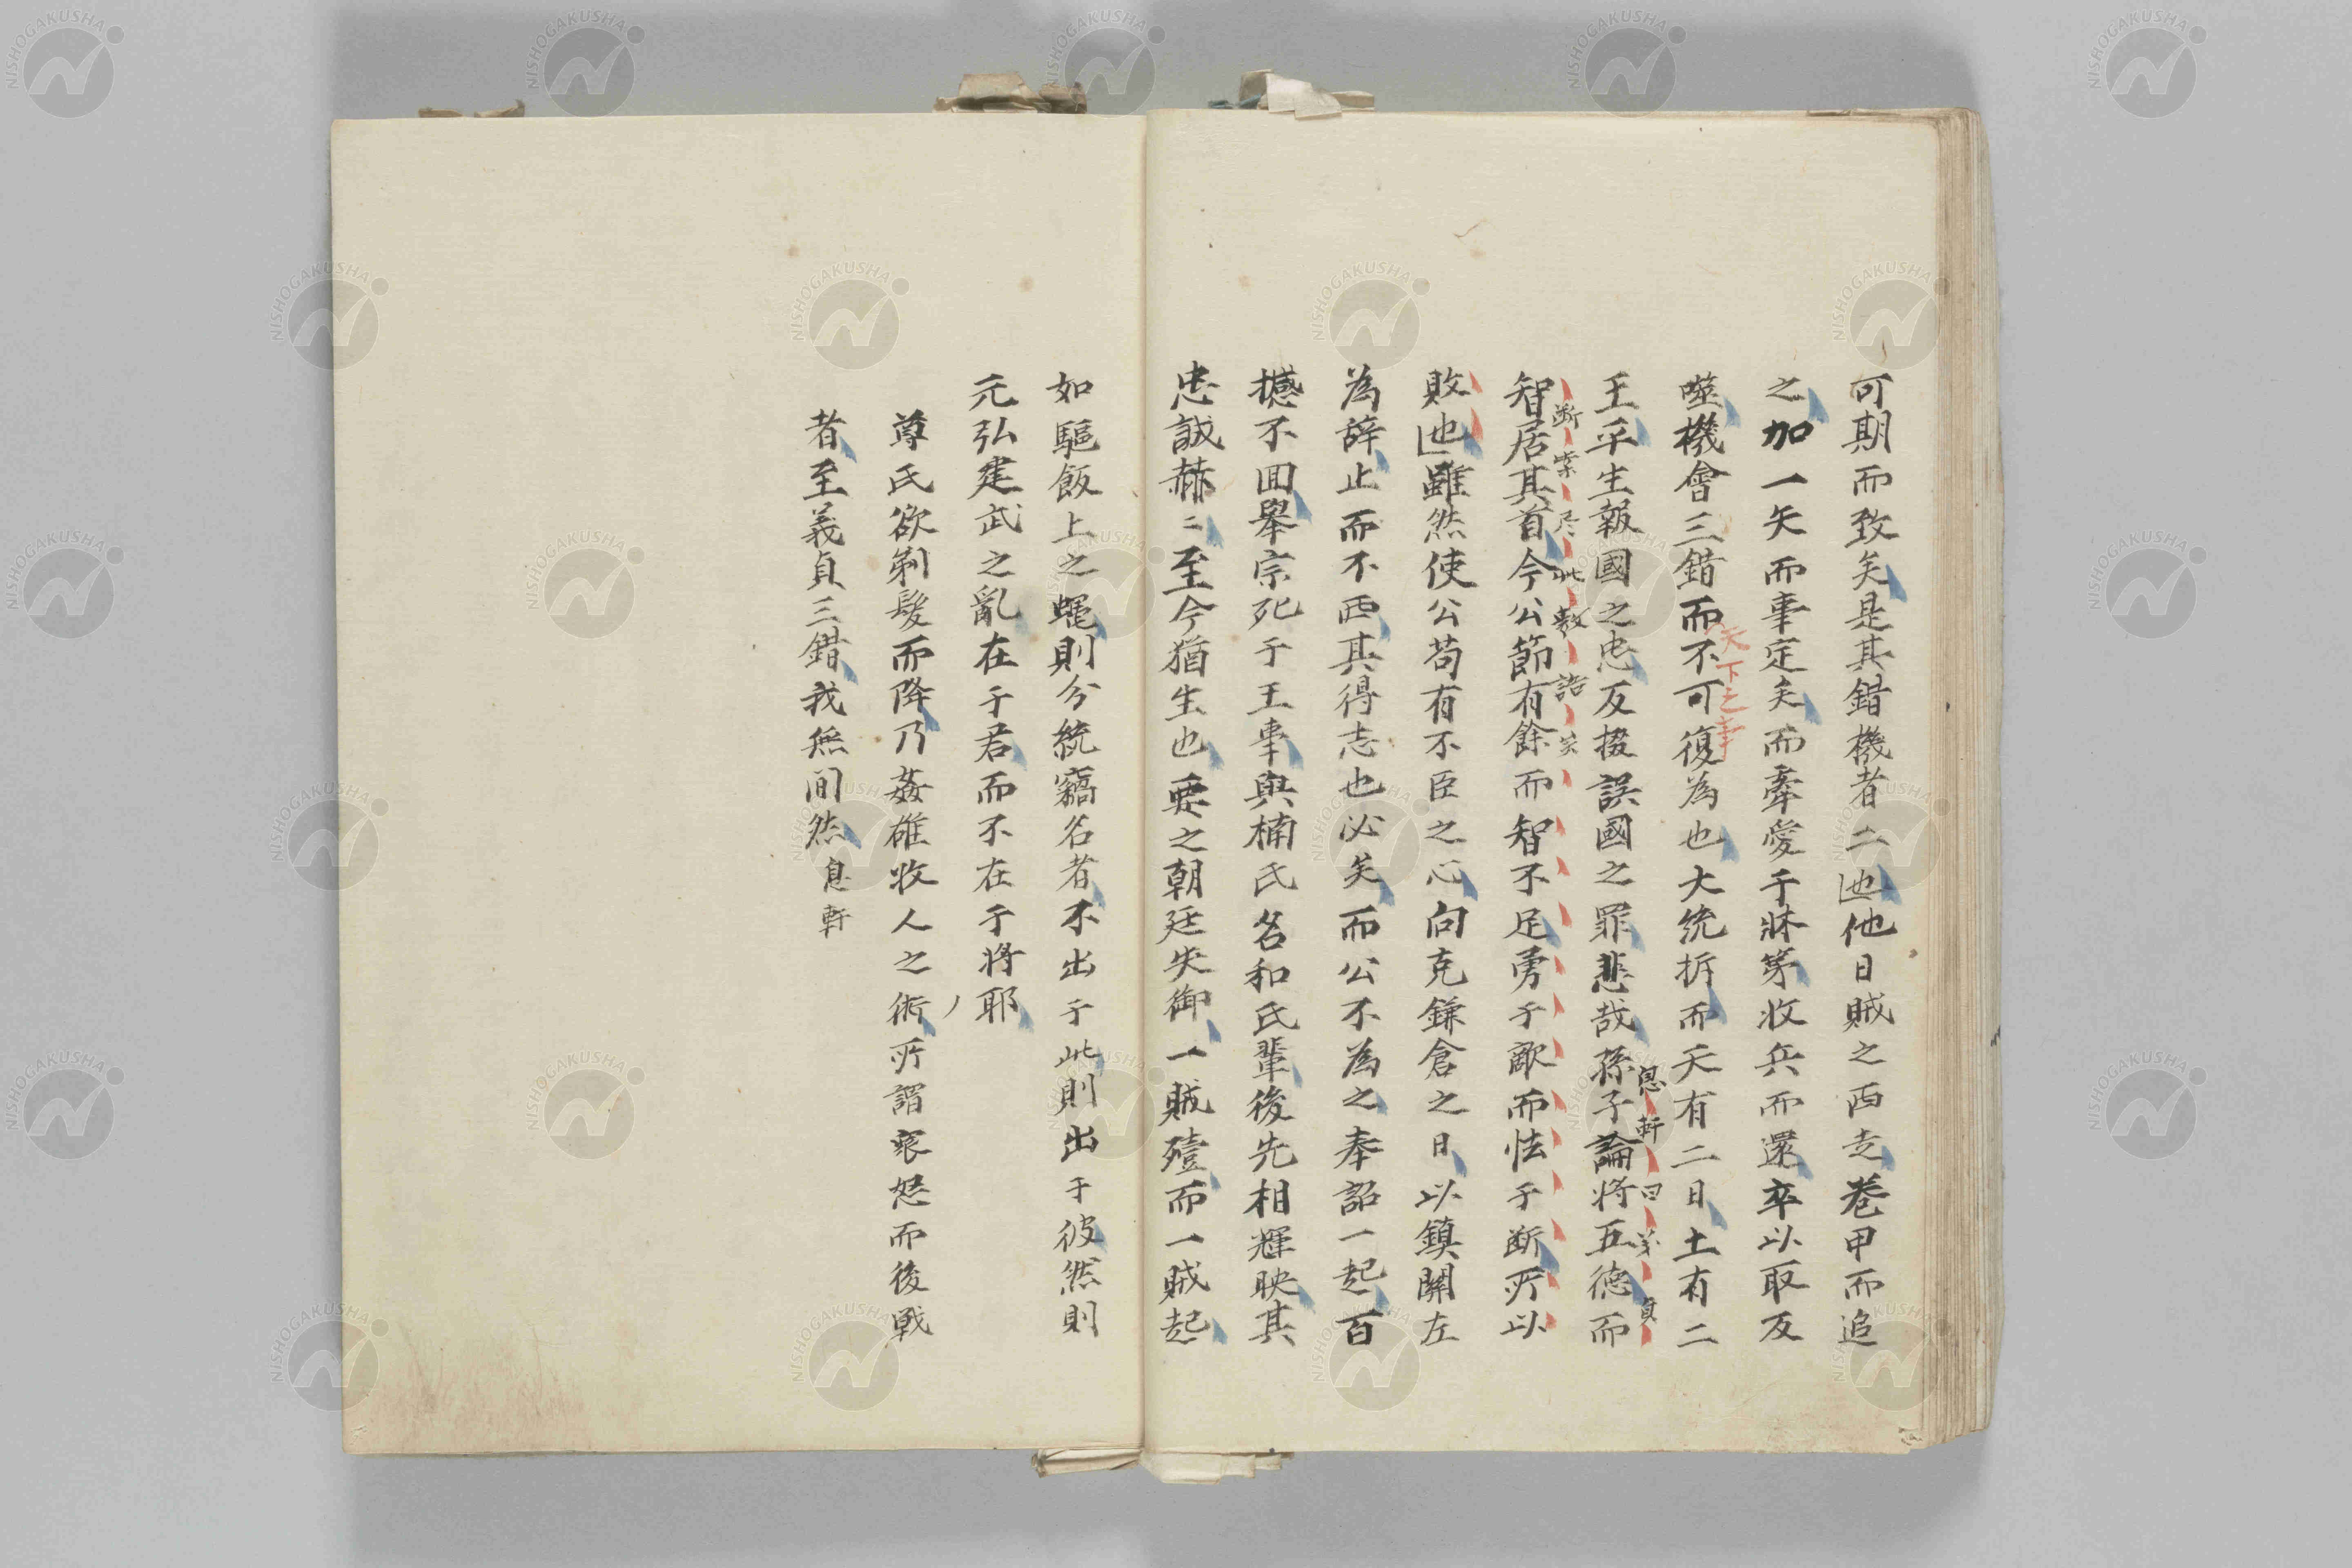 可期而致矣是其錯機者二也他日賊之西走巻甲而追
之加一矢而事定矣而牽愛于牀笫收兵而還卒以取反
天下之事
噬機會三錯而不可復為也大統拆而天有二日土有二
息軒曰義貞
王平生報國之忠反掇誤國之罪悲哉孫子論將五徳而
断案尽此数語矣
智居其首今公節有餘而智不足勇于敵而怯于断所以
敗也雖然使公苟有不臣之心向克鎌倉之日以鎮關左
為辞止而不西其得志也必矣而公不為之奉詔一起百
撼不囬舉宗死于王事與楠氏名和氏輩後先相輝映其
忠誠赫〻至今猶生也要之朝廷失御一賊殪而一賊起
如驅飯上之蠅則分統竊名者不出于此則出于彼然則
元弘建武之亂在于君而不在于将耶
尊氏欲剃髮而降乃姦雄收人之術所謂衆怒而後戰
者至義貞三錯我無間然息軒
NISHOGAKUSHA